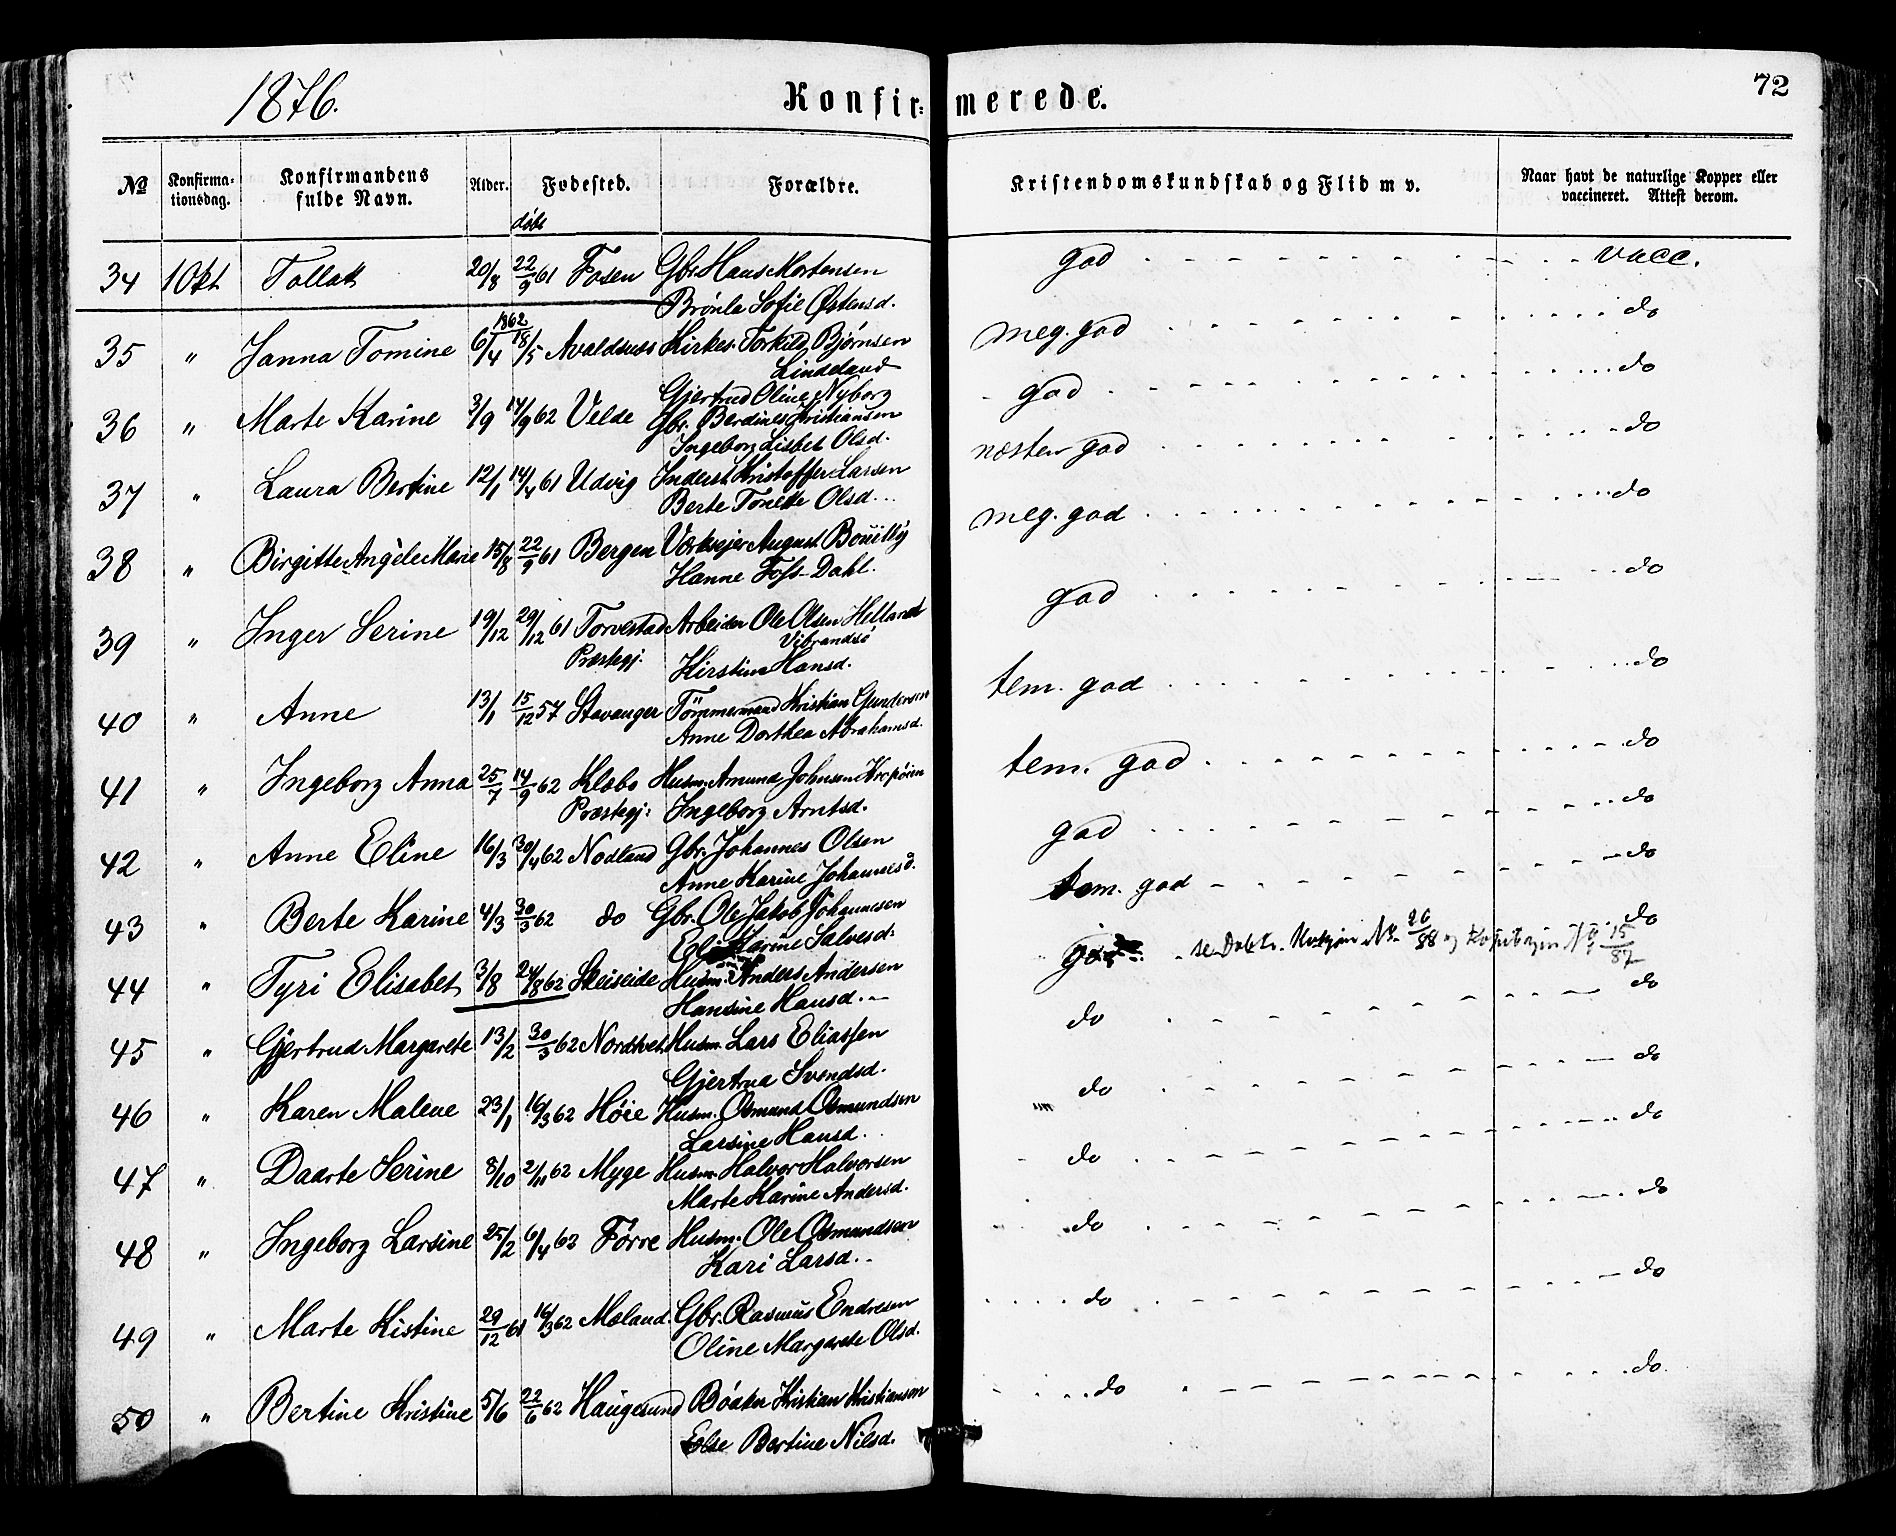 1876.
Konfirmerede.
72
No Konfirmationsdag. Konfirmandens fulde Navn. Alder. Fødested. Forældre. Kristendomskundskab og Flid m v. Naar havt de naturlige Kopper eller vaccineret. Attest derom.
døbt
34 1 Okt Tollak 20/8 22/9 61 Fosen Gbr. Hans Mortensen god vacc.
Brønla Sofie Østensd.
1862
35 " Janna Tomine 6/4 18/5 Avaldsnes Kirkes. Torkild Bjørnsen meg. god do
Lindeland
Gjertrud Oline Nyborg
36 " Marte Karine 3/9 14/9 62 Velde Gbr. Berdines Kristiansen god do
Ingeborg Lisbet Olsd.
37 " Laura Bertine 12/1 14/4 61 Udvig Inderst Kristoffer Larsen næsten god do
Berte Tonette Olsd.
38 " Birgitte Angéle Marie 15/8 22/9 61 Bergen Værkejer August Bouilly meg. god do
Hanne Foss-Dahl.
39 " Inger Serine 19/12 29/12 61 Torvestad Arbeider Ole Olsen Helland god do
Præstegj. Vibrandsö
Kirstine Hansd.
40 " Anne 13/1 15/12 57 Stavanger Tömmermand Kristian Gundersen tem. god do
Anne Dorthea Abrahamsd.
41 " Ingeborg Anna 25/7 14/9 62 Klæbo Husm. Amund Johnsen tem. god do
Præstegj: Ingeborg Arntsd.
42 " Anne Eline 16/3 30/4 62 Nodland Gbr. Johannes Olsen god do
Anne Karine Johannesd.
43 " Berte Karine 4/3 30/3 62 do Gbr. Ole Jakob Johannesen tem. god do
Eli Karine Salvesd.
44 " Tyri Elisabet 3/8 24/8 62 Skeiseide Husm. Anders Andersen god se Døbte. No. 26/88 og No 15/87 do
Hansine Hansd.
45 " Gjertrud Margarete 13/2 30/3 62 Nordtvet Husm. Lars Eliassen do do
Gjertrua Svendsd.
46 " Karen Malene 23/1 16/3 62 Høie Husm. Osmund Osmundsen do do
Larsine Hansd.
47 " Daarte Serine 8/10 2/11 62 Myge Husm. Halvor Halvorsen do do
Marte Karine Andersd.
48 " Ingeborg Larsine 25/2 6/4 62 Førre Husm. Ole Osmundsen do do
Kari Larsd.
49 " Marte Kistine 29/12 61 16/3 62 Mæland. Gbr. Rasmus Endresen do do
Oline Margarete Olsd.
50 " Bertine Kristine 5/6 22/6 62 Haugesund Bödker Kristian Kristiansen do do.
Else Bertine Nilsd.